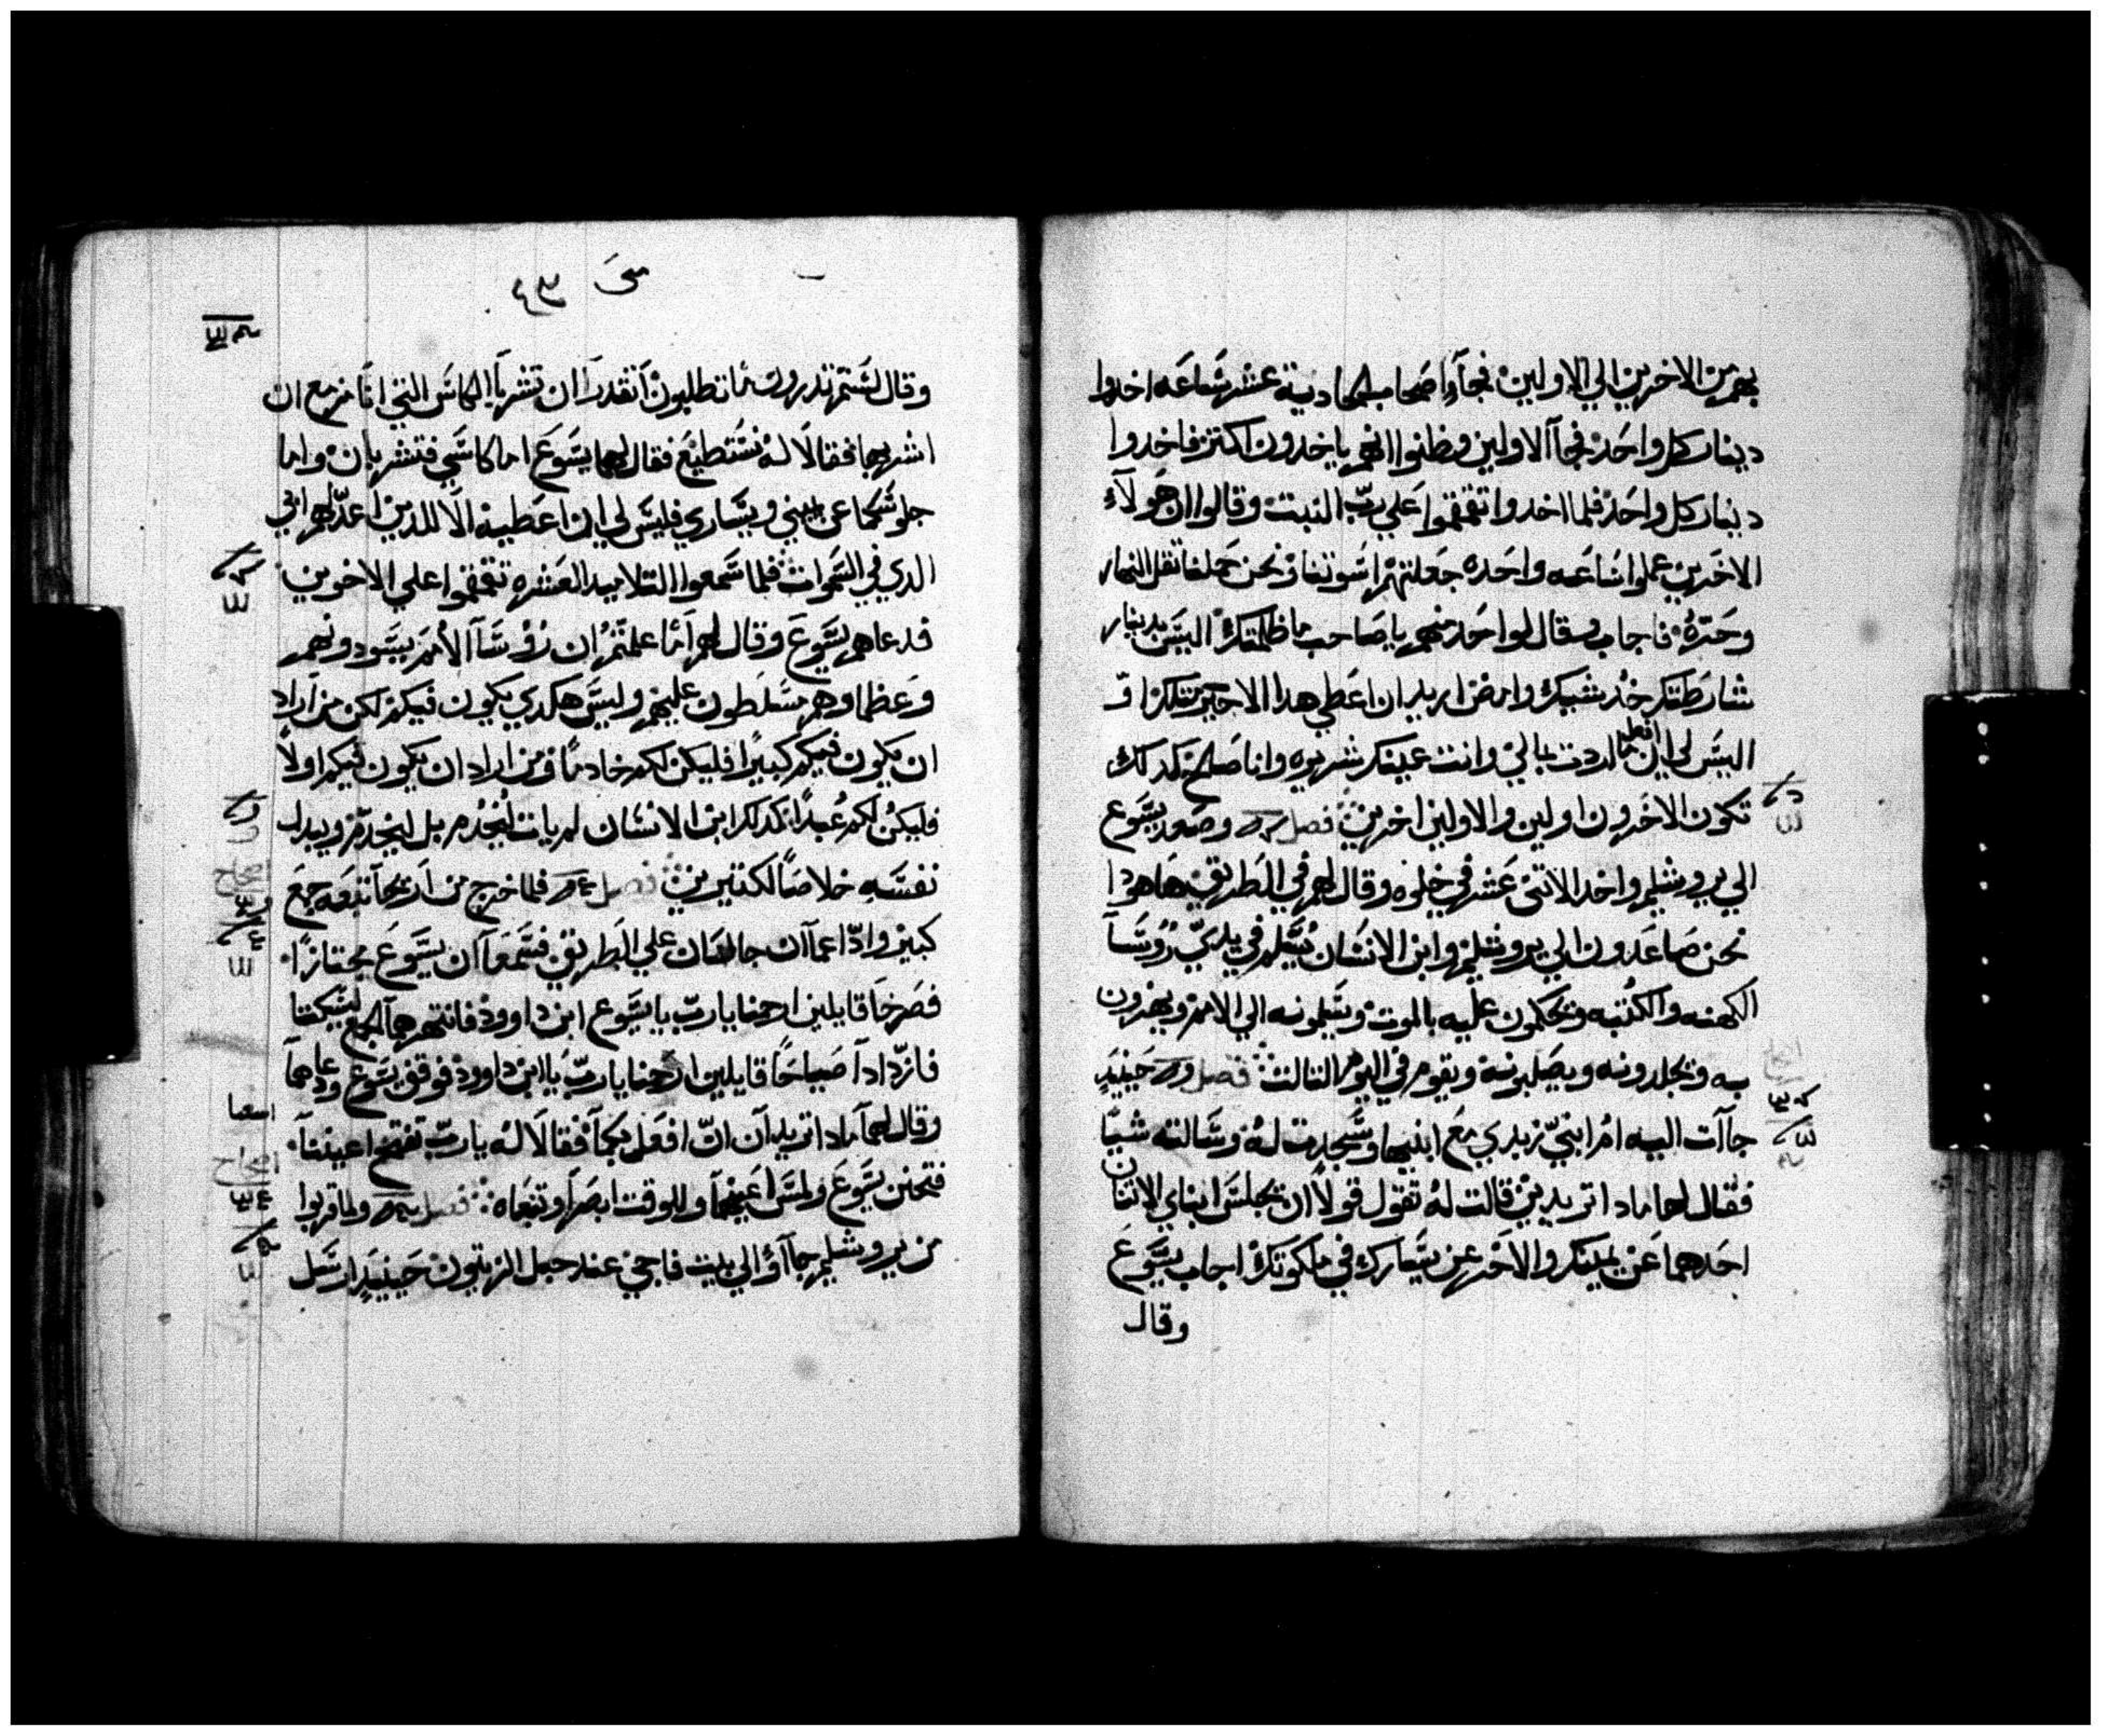 بهم من الاخرين الي الاولين فجآوا اصحاب الحادية عشر ساعه اخدوا
دينار كل واحد فجآ الاولين وظنوا انهم ياخدون اكتر فاخدوا
دينار كل واحد فلما اخدوا تقمقموا علي رب البيت وقالوا ان هولآء
الاخرين عملوا ساعه واحده جعلتهم اسوتنا ونحن حملنا تقل النهار
وحره فاجاب وقال لواحد منهم يا صاحب ما ظلمتك اليس بدينار
شارطتك خد شيك وامض اريد ان اعطي هدا الاخير متلك او
اليس لي ان افعل ما اردت بمالي وانت عينك شريره وانا صالح كدلك
تكون الاخرون اولين والاولين اخرين فصل وصعد يسوع
الي يروشليم واخد الاتني عشر في خلوه وقال لهم في الطريق هاهودا
نحن صاعدون الي يروشليم وابن الانسان يسلم في يدي روسآ
الكهنه والكتبه ويحكمون عليه بالموت ويسلمونه الي الامم ويهزون
به ويجلدونه ويصلبونه ويقوم في اليوم التالت فصل حينيد
جآات اليه ام ابني زبدي مع ابنيها وسجدت له وسالته شيا
فقال لها مادا تريدين قالت له تقول قولا ان يجلس ابناي الاتنان
احدهما عن يمينك والاخر عن يسارك في ملكوتك اجاب يسوع
وقال
متي ٤٣
وقال لستم تدرون ما تطلبون اتقدرا ان تشربا الكاس التي انا مزمع ان
اشربها فقالا له نستطيع فقال لهما يسوع اما كاسي فتشربان واما
جلوسكما عن يميني ويساري فليس لي ان اعطيه الا للدين اعد لهم ابي
الدي في السموات فلما سمعوا التلاميد العشره تقمقموا علي الاخوين
فدعاهم يسوع وقال لهم اما علمتم ان رؤسآ الامم يسودونهم
وعظماوهم مسلطون عليهم وليس هكدي يكون فيكم لكن من اراد
ان يكون فيكم كبيرا فليكن لكم خادما ومن اراد ان يكون فيكم اولا
فليكن لكم عبدا كمدلك ابن الانسان لم يات ليخدم بل ليخدم ويبدل
نفسه خلاصا لكتيرين فصل فلما خرج من اريحا تبعه جمع
كبير وادا اعمآان جالسان علي الطريق فسمعا ان يسوع مجتازا
فصرخا قايلين ارحمنا يارب يا يسوع ابن داوود فانتهرهما الجمع ليسكتا
فازدادآ صياحا قايلين ارحمنا يارب يا ابن داوود فوقف يسوع ودعاهما
وقال لهما مادا تريدآن ان افعل بكما فقالا له يارب تفتح اعيننا
فتحنن يسوع ولمس اعينهما وللوقت ابصرا وتبعاه فصل ولما قربوا
من يروشليم جآؤ الي بيت فاجي عند جبل الزيتون حينيد ارسل